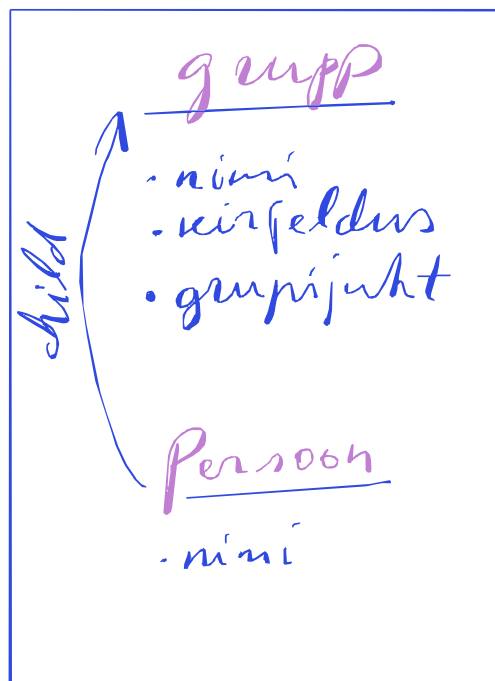 grupp
• nimi
• kirjeldus
• grupijuht
child
Persoon
• nimi